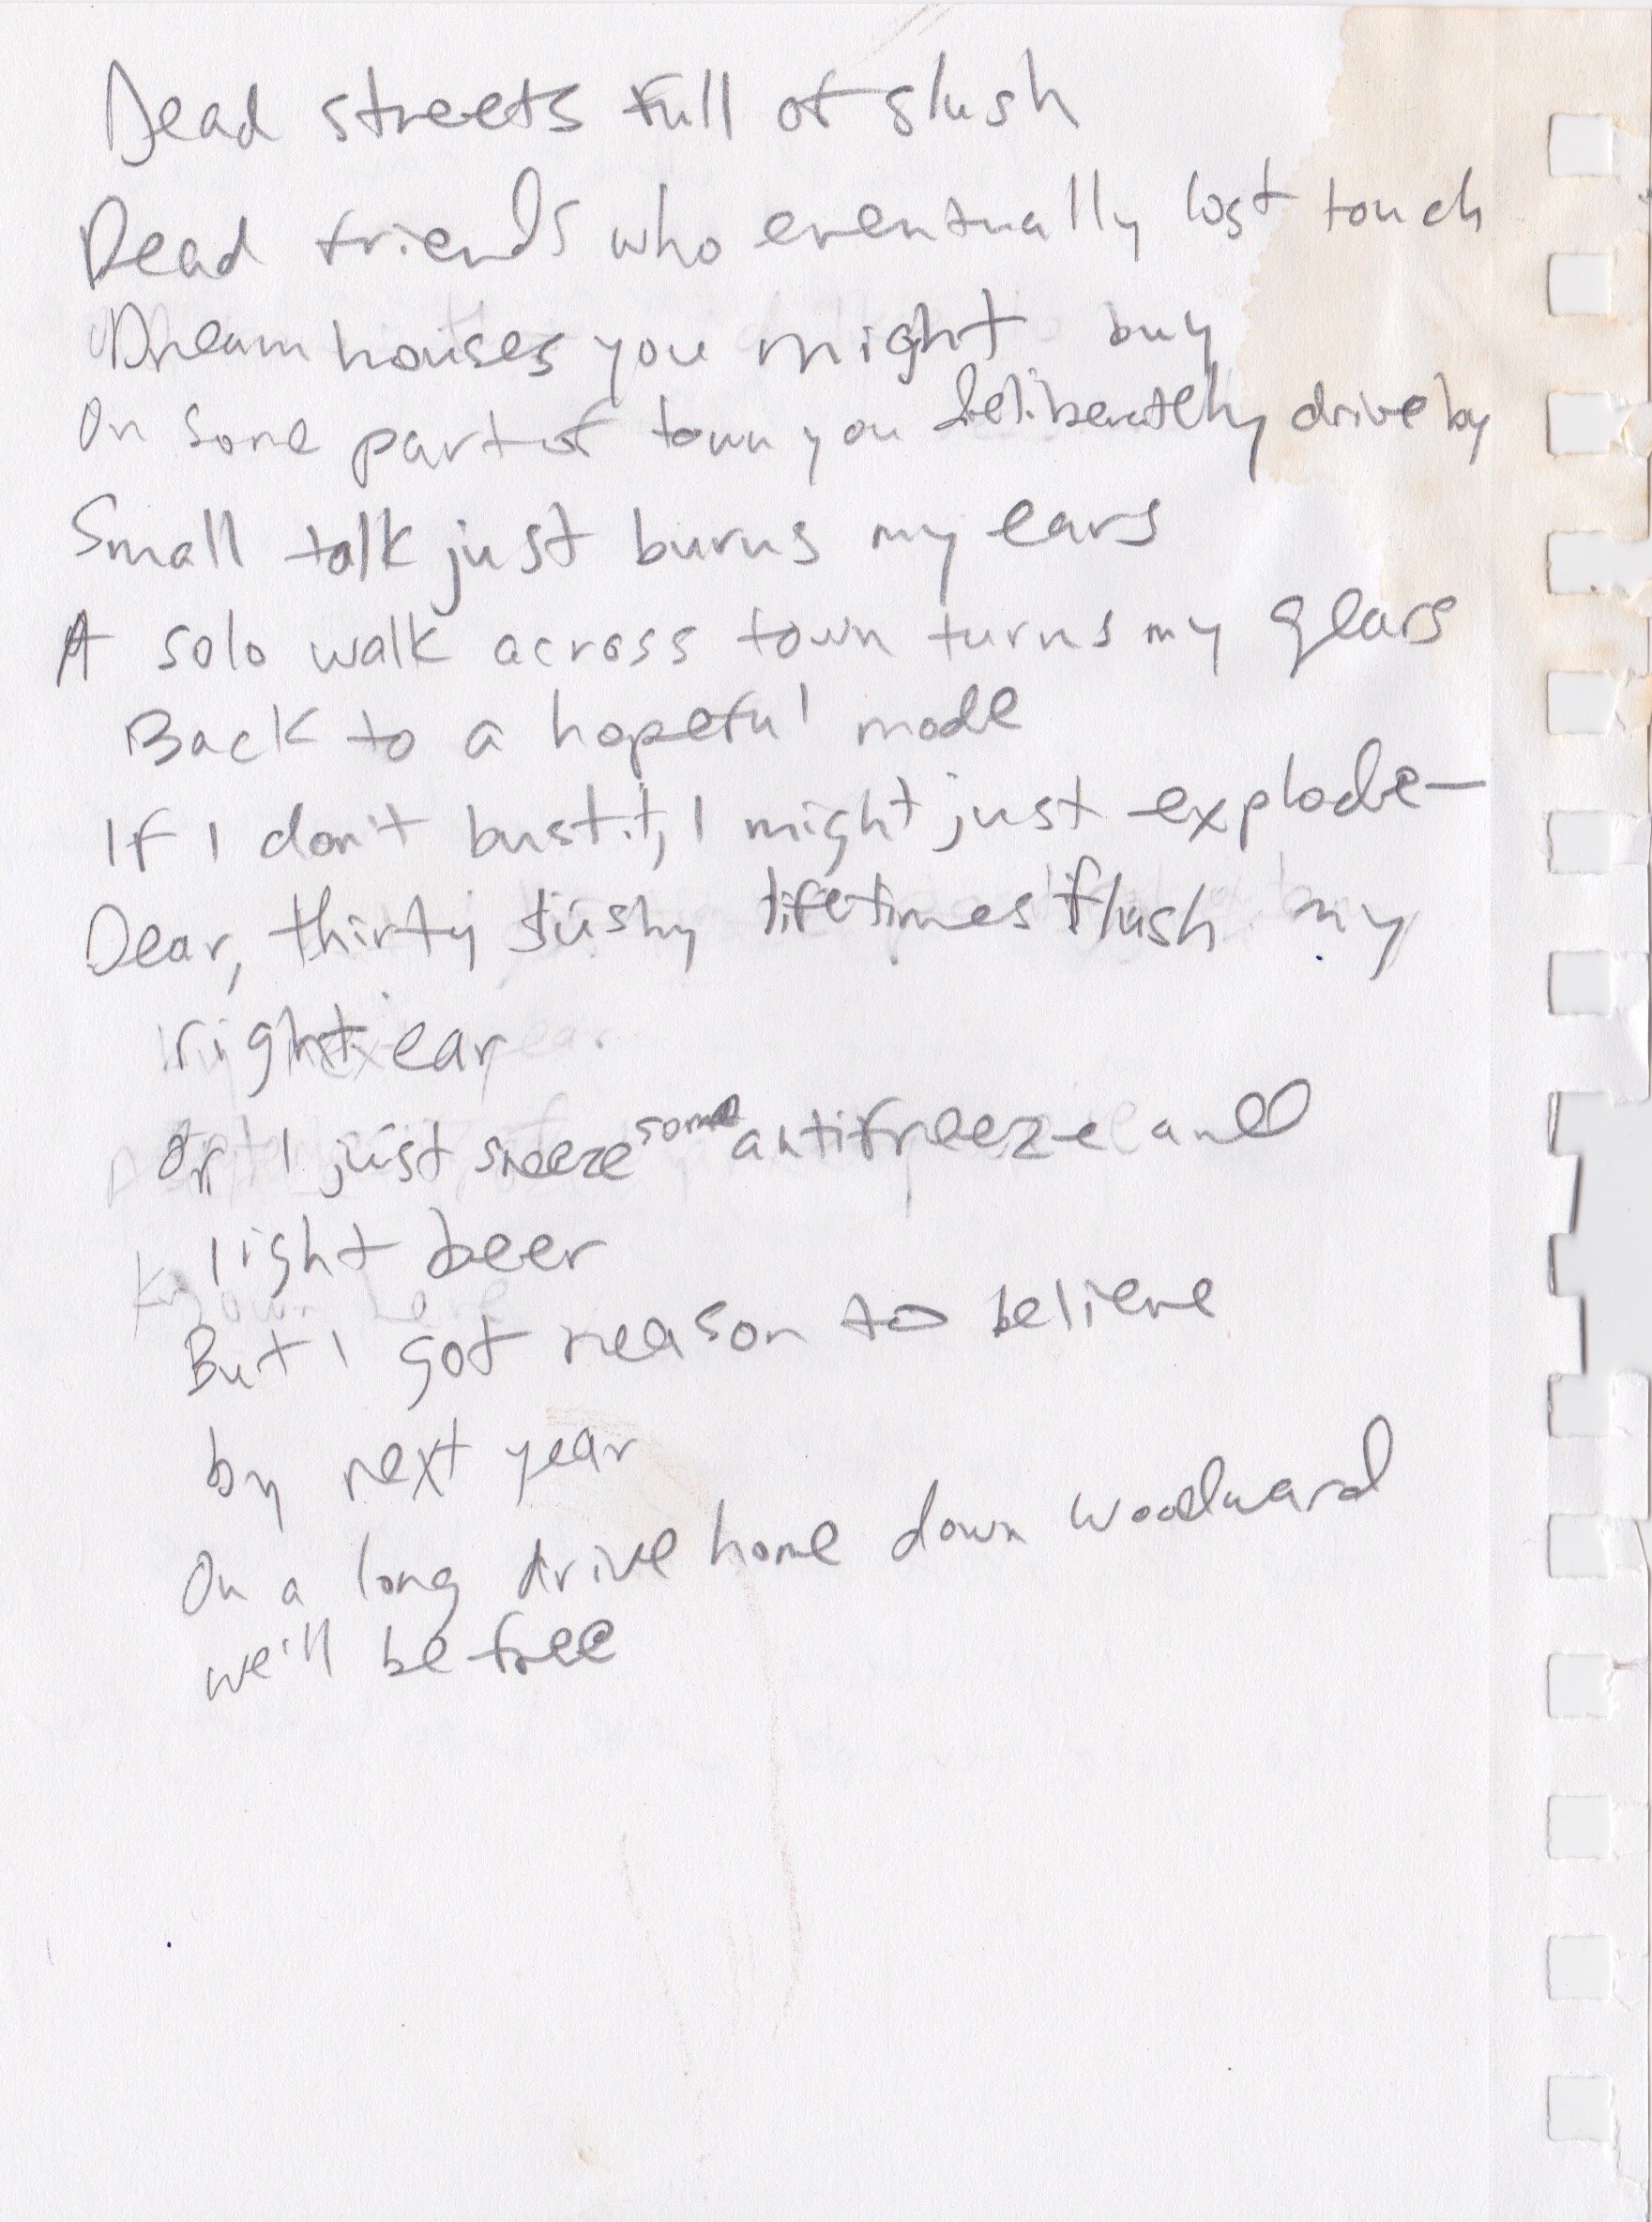 Dead streets full of slush
Dead friends who eventually lost touch
Dream houses you might buy
On some part of town you deliberately drive by
Small talk just burns my ears
A solo walk across town turns my gears
Back to a hopeful mode
If I don't bust it, I might just explode—
Dear, thirty lifetimes flush my
right ear
Or I just sneeze some antifreeze and
light beer
But I got reason to believe
by next year
On a long drive home down Woodward
we'll be free